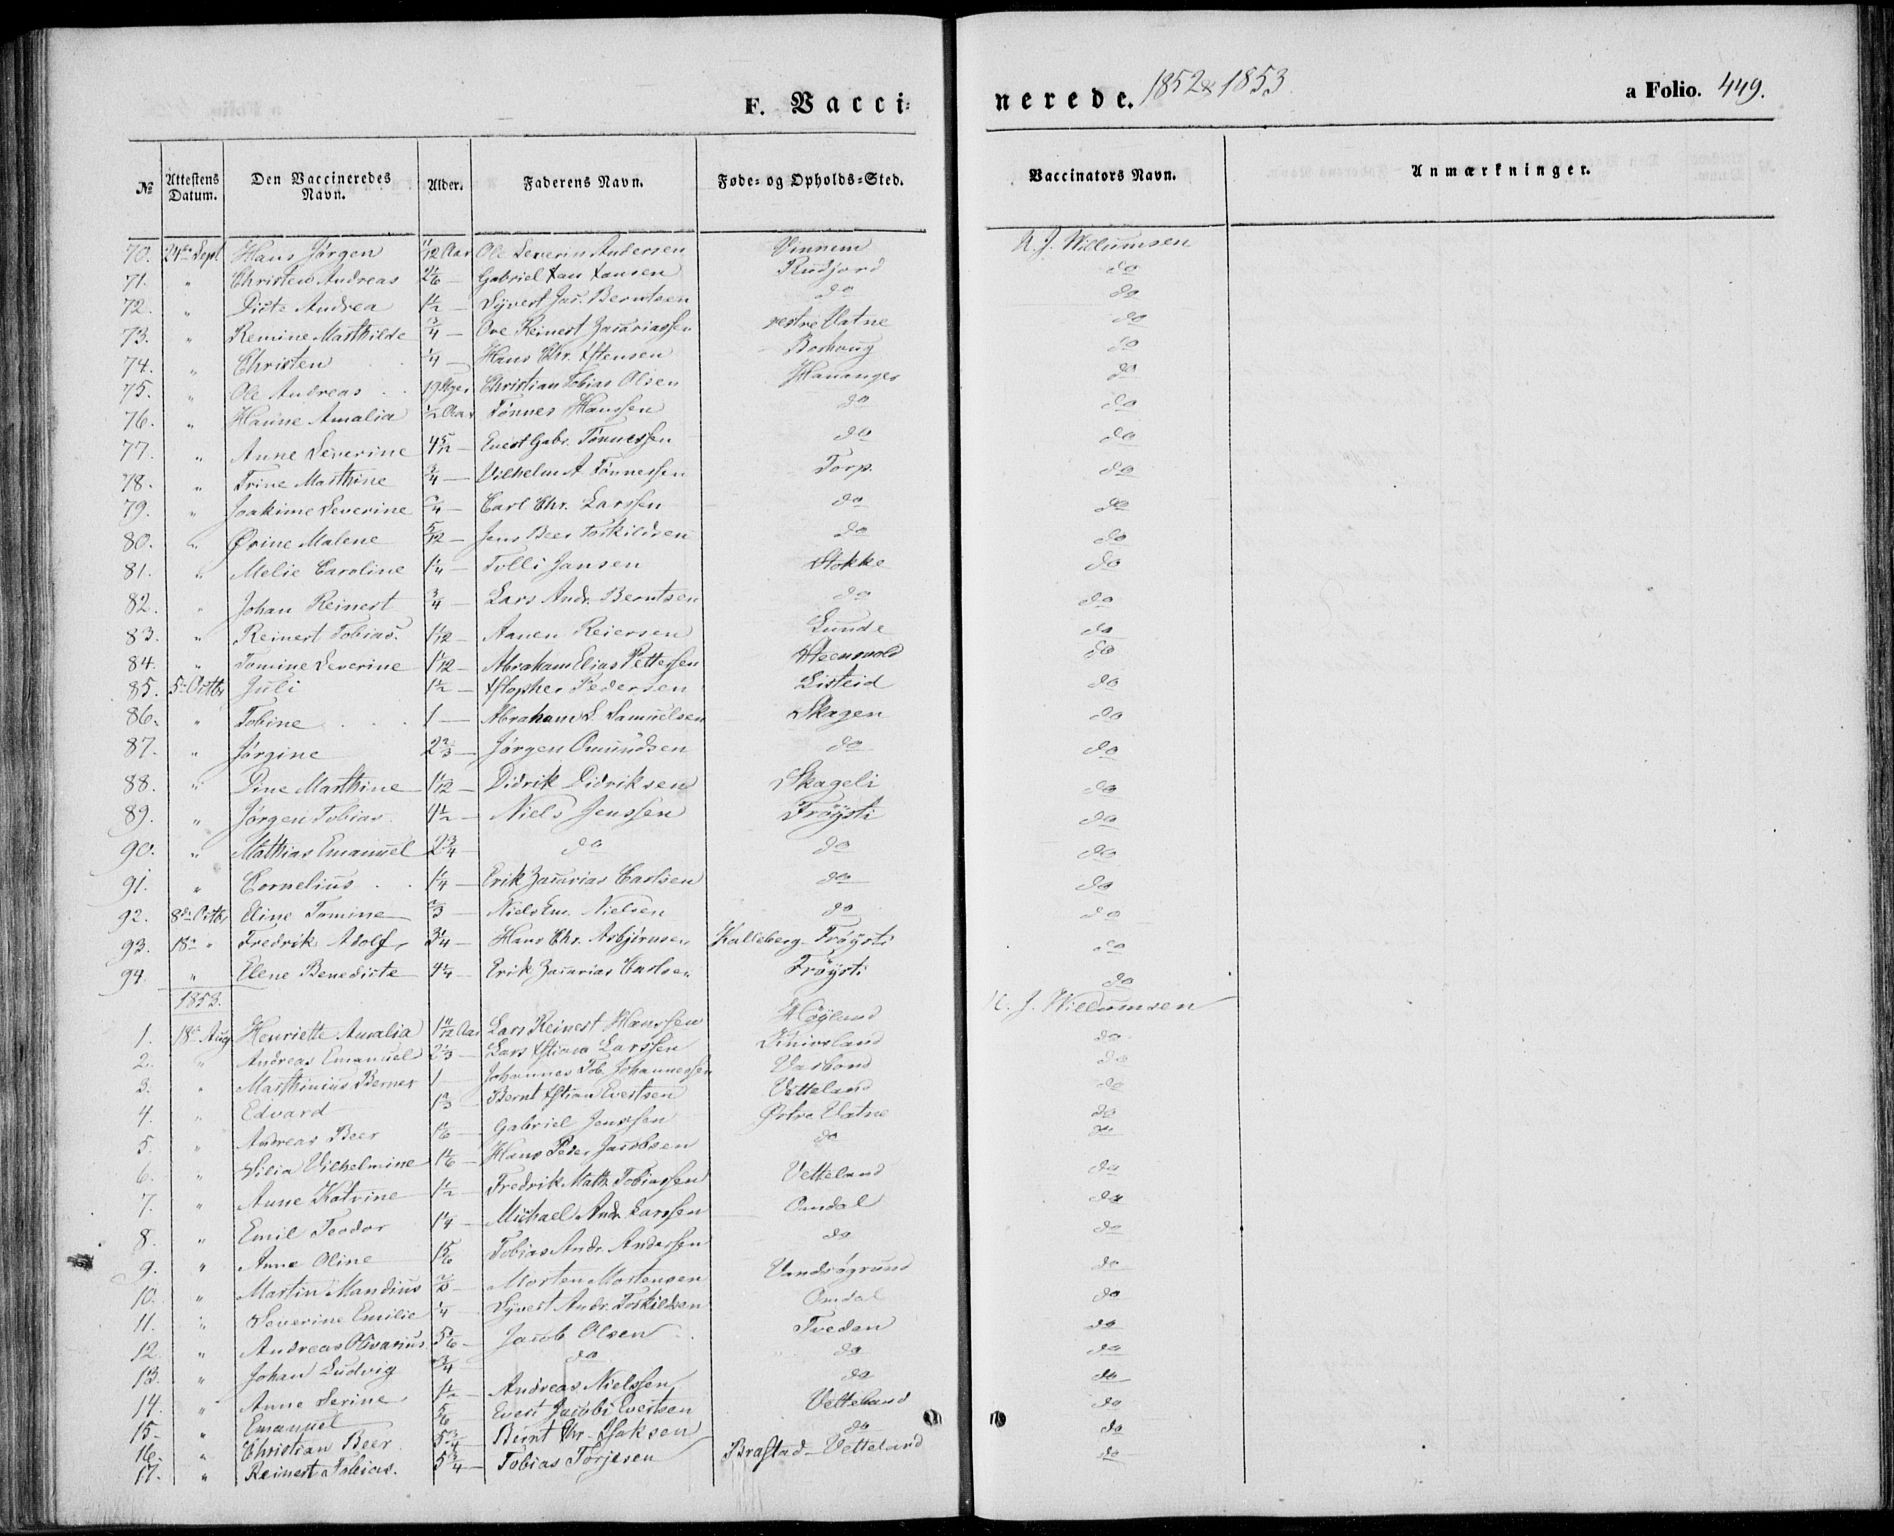 F. Vacci-
nerede. 1852 & 1853
a Folio. 449.
№ Attestens Datum. Den Vaccineredes Navn. Alder. Faderens Navn. Føde- og Opholds-Sted. Vaccinators Navn. Anmærkninger.
70. 24de Sept Hans Jørgen 11/12 Aar Ole Severin Andersen Vinnem N. J. Willumsen
71. " Christen Andreas Gabriel do
72. " Andrea 1½ — Syvert Jac. Berntsen do do
73. " Remine Marthilde ¾ — Ove Reinert Zacariassen vestre Vatne do
74. " Christen ¼ — Hans Chr. Borhaug do
75. " Ole Andreas 19 Uger Christian Tobias Olsen Hananger do
76. " Hanne Amalia ½ Aar Tønnes Hanssen do do
77. " Anne Severine 4 5/12 — Evert Gabr. Tønnessen do do
78. " Trine Marthine ¾ — Vilhelm A. Tønnessen Torp do
79. " Joakime Severine ¾ — Carl Chr. Larssen do do
80. " Ørine Malene 5/12 — Jens Beer Toskildsen do do
81. " Melie Caroline 1¼ — Tolli Jansen Stokke do
82. " Johan Reinert ¾ — Lars Andr. Berntsen do do
83. " Reinert Tobias. 1 1/12 — Aanen Reiersen Lunde do
84. " Tomine Severine 1 1/12 — Abraham Elias Pettersen do
85. 5te Octbr Juli 1½ — Xstopher Pedersen Listeid do
86. " Tobine 1 — Abraham S. Samuelsen Skagen do
87. " Jørgine 2⅔ — Jørgen Omundsen do do
88. " Dine Marthine 1 1/12 — Didrik Didriksen Skageli do
89. " Jørgen Tobias 4½ — Niels Jenssen Trøysti do
90. " Mathias Emanuel 2¾ do do do
91. " Cornelius 1¼ — Erik Zacarias Carlsen do do
92. 8de Octbr Eline Tomine ⅔ — Niels Em. Nielsen do do
93. 18de " Fredrik Adolf 3¼ — Hans Chr. Asbjørnsen Kalleberg-Trøysti do
94. " Elene Benedicte 4¼ — Erik Zacarias Carlsen Trøysti do
1853.
1. 18de Aug Henriette Amalia 1 11/12 Aar Lars Reinert Hanssen Høyland N. J. Willumsen
2. " Andreas Emanuel 2⅓ — Lars Xstian Larssen Knivsland do
3. " Marthinius Berner 1 — Johannes Tob. Johannessen do
4. " Edvard 1⅔ — Bernt Xstian Evertsen Vetteland do
5. " Andreas Beer 1⅙ — Gabriel Jenssen Østre Vatne do
6. " Silia Vilhelmine 1⅙ — Hans Peder Jacobsen do do
7. " Anne Katrine 1½ — Fredrik Math. Tobiassen Vetteland do
8. " Emil Teodor 1¼ — Michael Andr. Larssen Omdal do
9. " Anne Oline 1⅚ Tobias Andr. Anderssen do do
10. " Martin Mandius ⅔ — Morten Mortensen Vandsøgrund do
11. " Severine Emilie ¼ — Syvert Andr. Toskildsen Omdal do
12. " Andreas Olivarius 5⅚ — Jacob Olsen Tveden do
13. " Johan Ludvig ¾ do do do
14. " Anne Serine 1½ — Andreas Nielssen do do
15. " Emanuel ⅚ Evert Jacobi Evertsen Vetteland do
16. " Christian Beer 5¾ — Bernt Chr. Isaksen do do
17. " Reinert Tobias. 5¾ — Tobias Torjesen Brastad-Vetteland do